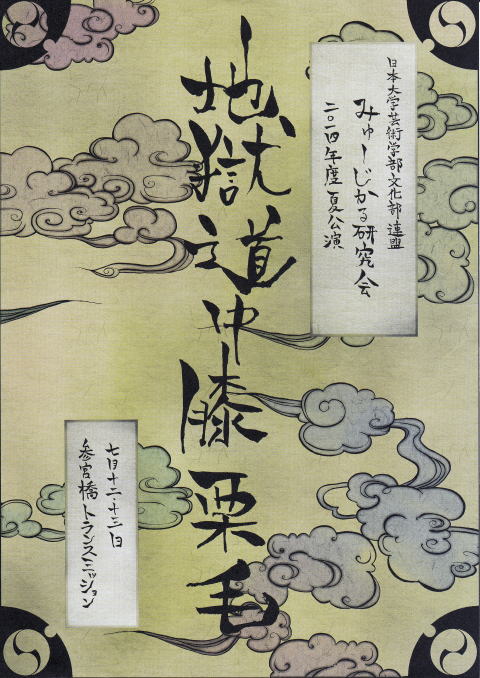 日本大学芸術学部文化部連盟
みゅーじかる研究会
二〇一四年度夏公演
地獄之道中膝栗毛
七月十二・十三日
参宮橋トランスミッション